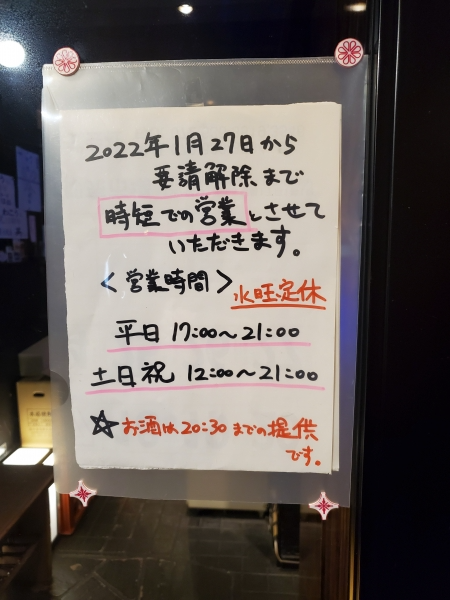 2022年1月27日から
要請解除まで
時短での営業とさせて
いただきます。
〈営業時間〉
水旺定休
平日 17:00〜21:00
土日祝 12:00〜21:00
☆お酒は20:30までの提供
です。